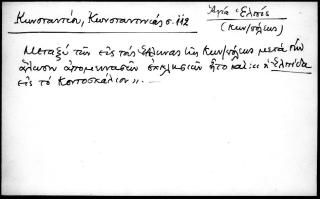 Κωνσταντίου, Κωνσταντινιάς σ. 112
Ἁγία Ἐλπίς
(Κων/πόλεως)
Μεταξὺ τῶν εἰς τοὺς Ἕλληνας τῆς Κων/πόλεως μετὰ τὴν
ἅλωσιν ἀπομεινασῶν ἐκκλησιῶν ἦτο καὶ: « ἡ Ἐλπίδα
εἰς τὸ Κοντοσκάλιον ».